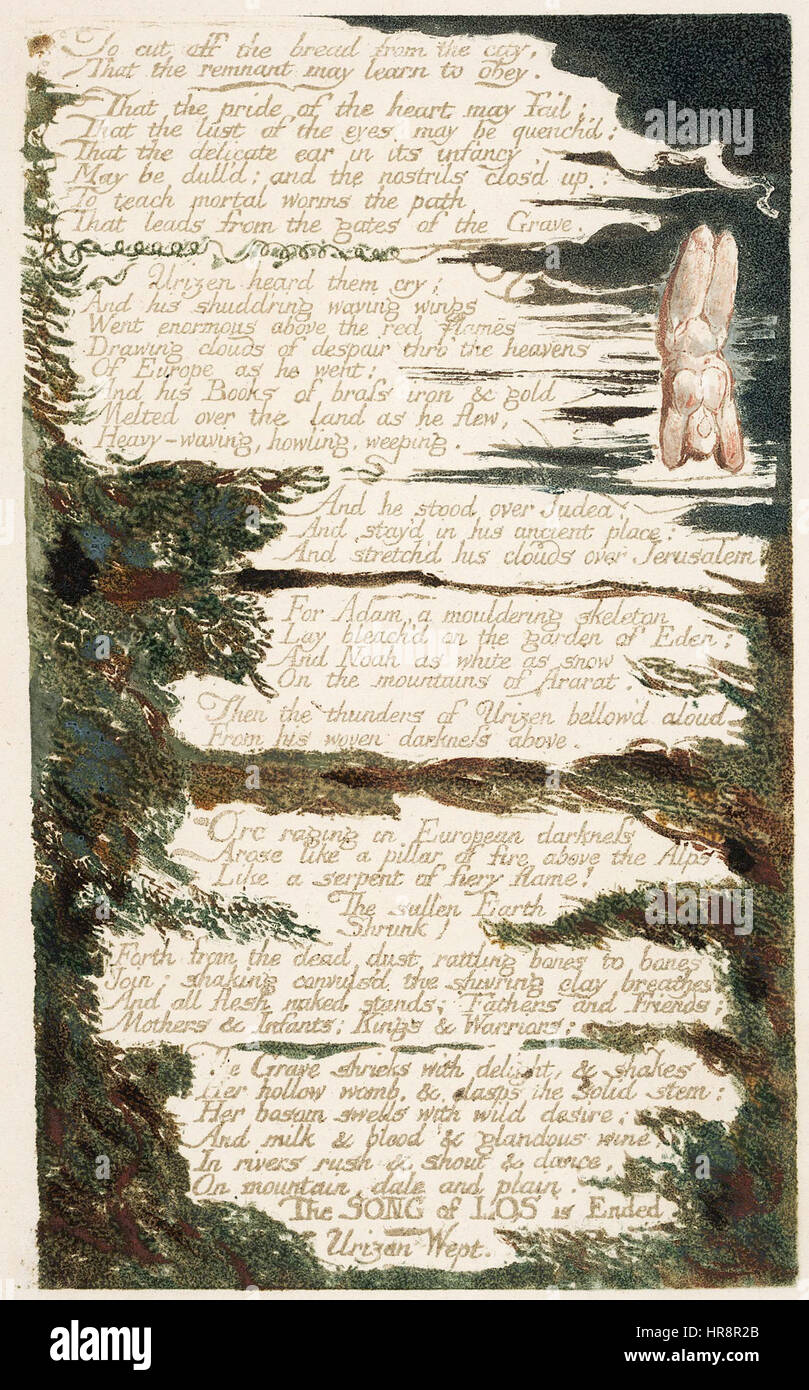 To cut off the bread from the city,
That the remnant may learn to obey.
That the pride of the heart may fail;
That the lust of the eyes, may be quench'd:
That the delicate ear in its infancy
May be dull'd; and the nostrils clos'd up;
To teach mortal worms the path
That leads from the gates of the Grave.
Urizen heard them cry;
And his shudd'ring waving wings
Went enormous above the red flames
Drawing clouds of despair thro' the heavens
Of Europe as he went:
And his Books of brass iron & gold
Melted over the land as he flew,
Heavy-waving, howling, weeping.
And he stood over Judea:
And stay'd in his ancient place:
And stretch'd his clouds over Jerusalem;
For Adam, a mouldering skeleton
Lay bleach'd on the garden of Eden;
And Noah as white as snow
On the mountains of Ararat.
Then the thunders of Urizen bellow'd aloud
From his woven darkness above.
Orc raging in European darkness
Arose like a pillar of fire above the Alps
Like a serpent of fiery flame!
The sullen Earth
Shrunk!
Forth from the dead dust rattling bones to bones
Join: shaking convuls'd the shiv'ring clay breathes
And all flesh naked stands: Fathers and Friends;
Mothers & Infants; Kings & Warriors:
The Grave shrieks with delight, & shakes
Her hollow womb, & clasps the solid stem:
Her bosom swells with wild desire:
And milk & blood & glandous wine
In rivers rush & shout & dance,
On mountain, dale and plain.
The SONG of LOS is Ended.
Urizen Wept.
alamy
Image ID: HR8R2B
www.alamy.com